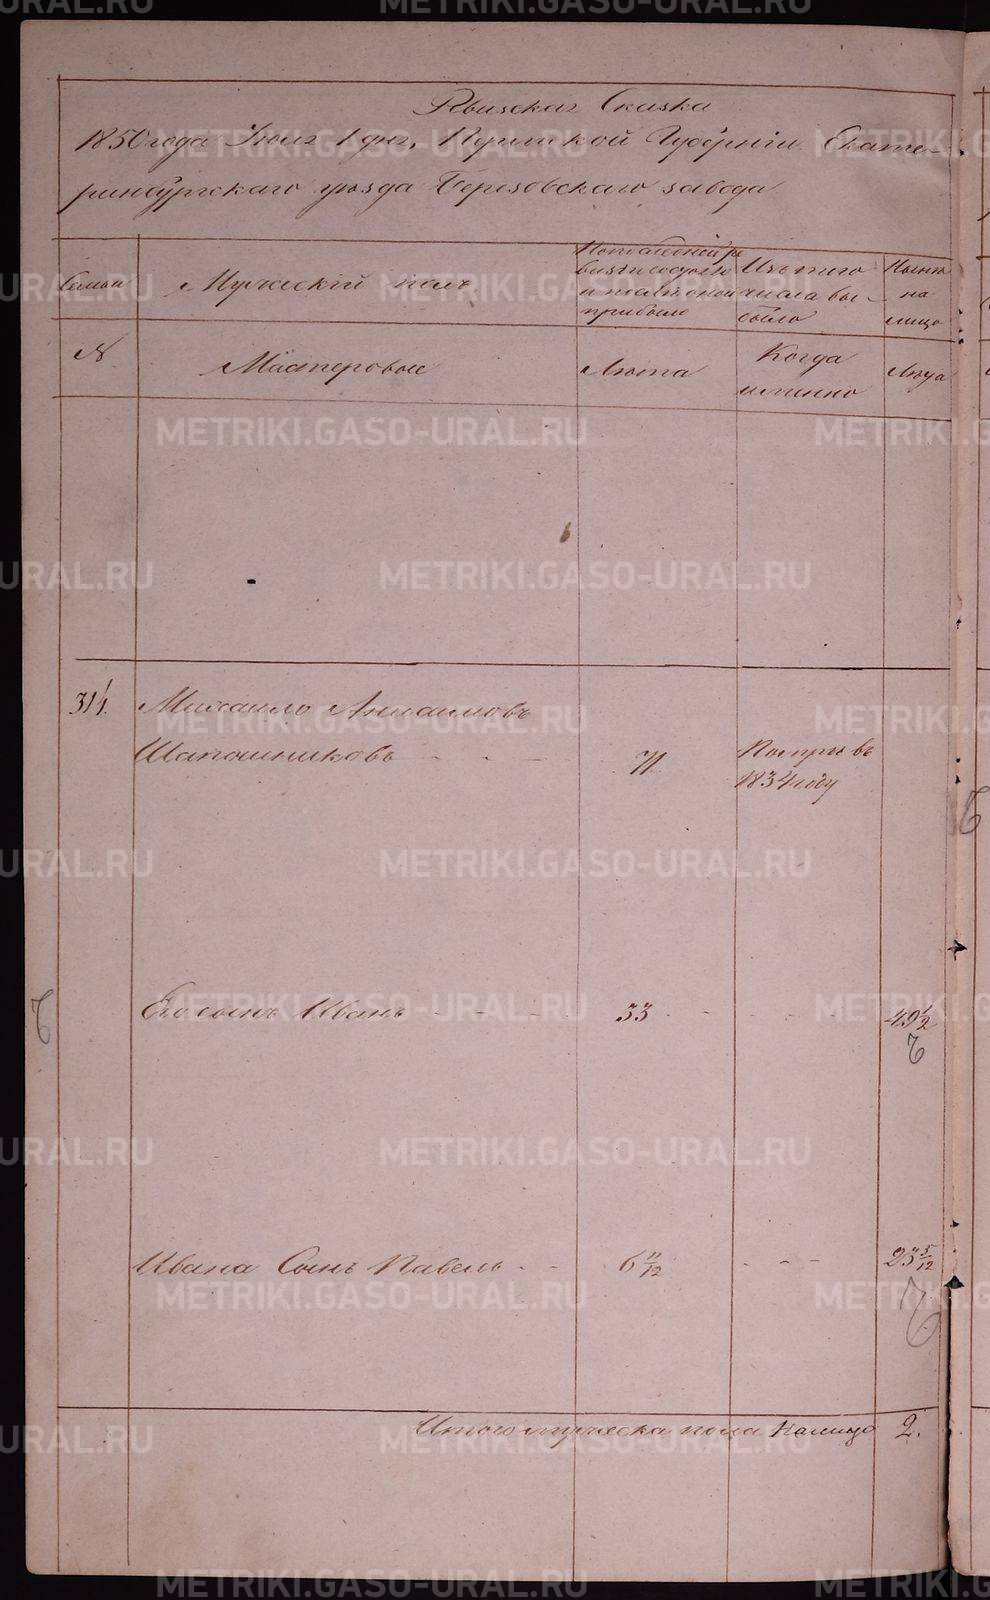 Ревизская Сказка
1850 года Июля 1 дня, Пермской Губернiи Екате-
ринбургскаго уѣзда Березовскаго завода
Семьи
Мужескiй полъ
По последней ре
визiи состояло
и после оной
прибыло
Изъ того
числа вы-
было
Ныне
на
лицо
№
Мастеровые
Лѣта
Когда
именно
Лѣта
314.
Михаило Анисимовъ
Шапошниковъ - - -
71.
Помре въ
1834 году
Его сынъ Иванъ - - - -
33 - - - - -
49 1/2
Ивана Сынъ Павелъ - -
6 11/12 - - -
23 5/12
Итого мужеска пола налицо 2.
METRIKI.GASO-URAL.RU